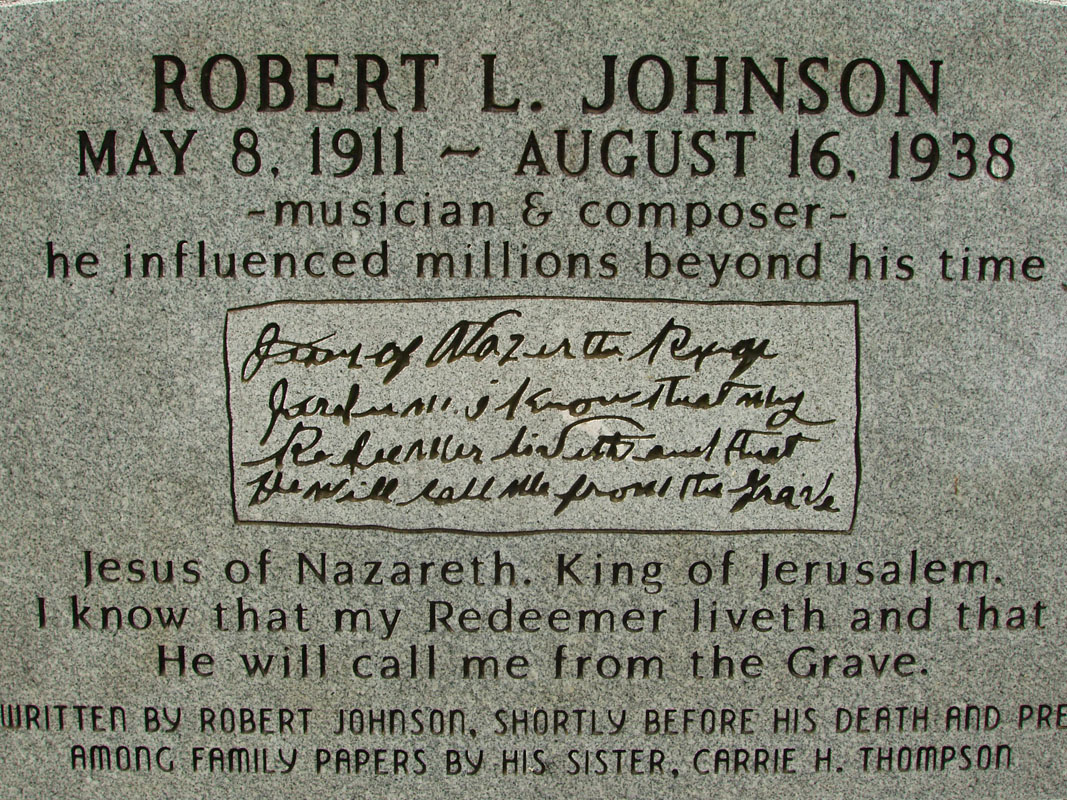 ROBERT L. JOHNSON
MAY 8, 1911 ~ AUGUST 16, 1938
~musician & composer~
he influenced millions beyond his time
Jesus of Nazareth King of
Jerusalem. I know that my
Redeemer liveth and that
He will call me from the Grave
Jesus of Nazareth. King of Jerusalem.
I know that my Redeemer liveth and that
He will call me from the Grave.
WRITTEN BY ROBERT JOHNSON, SHORTLY BEFORE HIS DEATH AND PRE
AMONG FAMILY PAPERS BY HIS SISTER, CARRIE H. THOMPSON